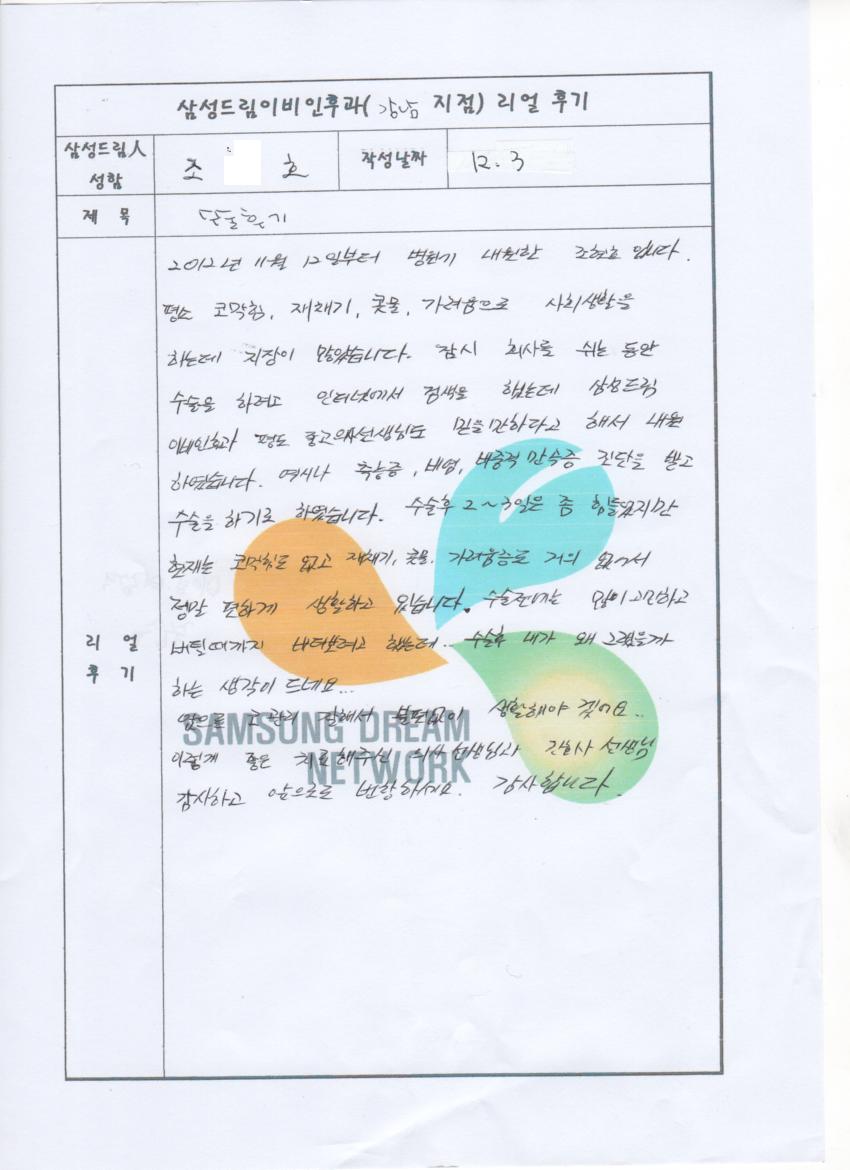 삼성드림이비인후과( 강남 지점) 리얼 후기
삼성드림人 성함
조 호
작성날짜
12. 3
제 목
수술후기
2012년 11월 12일부터 병원에 내원한 조현호 입니다.
평소 코막힘, 재채기, 콧물, 가려움으로 사회생활을
하는데 지장이 많았습니다. 잠시 회사를 쉬는 동안
수술을 하려고 인터넷에서 검색을 했는데 삼성드림
이비인후과 평도 좋고 의사선생님도 믿을만하다고 해서 내원
하였습니다. 역시나 축농증, 비염, 비중격 만곡증 진단을 받고
수술을 하기로 하였습니다. 수술후 2~3일은 좀 힘들었지만
현재는 코막힘도 없고 재채기, 콧물. 가려움증도 거의 없어서
정말 편하게 생활하고 있습니다. 수술전에는 많이 고민하고
버틸때까지 버텨보려고 했는데... 수술후 내가 왜 그랬을까
하는 생각이 드네요...
앞으로 코관리 잘해서 불편없이 생활해야 겠어요..
이렇게 좋은 치료해주신 의사선생님과 간호사 선생님
감사하고 앞으로도 번창하세요. 감사합니다.
리 얼
후 기
SAMSUNG DREAM
NETWORK